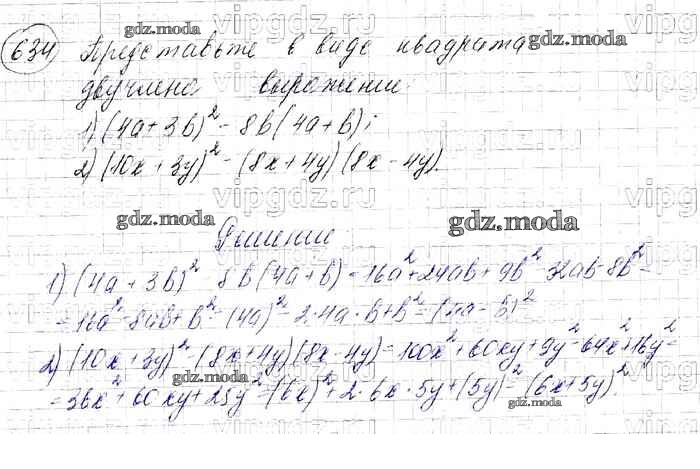 634 Представьте в виде квадрата
двучлена выражение:
1) (4a+3b)² - 8b(4a+b);
2) (10x+3y)² - (8x+4y)(8x-4y).
Решение
1) (4a+3b)² 8b(4a+b) = 16a²+24ab+9b²-32ab-8b² =
= 16a²-8ab+b² = (4a)² - 2·4a·b+b² = (4a-b)²
2) (10x+3y)² - (8x+4y)(8x-4y) = 100x²+60xy+9y²-64x²+16y² =
= 36x²+60xy+25y² = (6x)²+2·6x·5y+(5y)² = (6x+5y)².
gdz.moda
gdz.moda
gdz.moda
gdz.moda
gdz.moda
gdz.moda
vipgdz.ru
vipgdz.ru
vipgdz.ru
vipgdz.ru